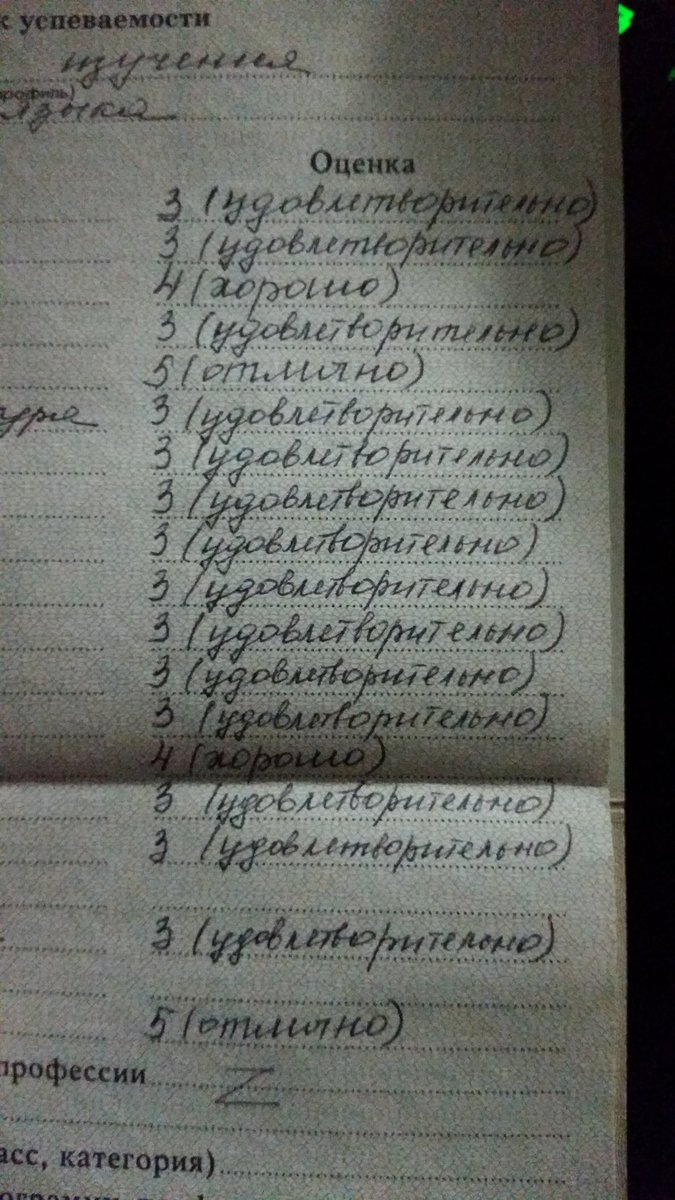 к успеваемости
изучения
профиль)
языка
Оценка
3 (удовлетворительно)
3 (удовлетворительно)
4 (хорошо)
3 (удовлетворительно)
5 (отлично)
3 (удовлетворительно)
3 (удовлетворительно)
3 (удовлетворительно)
3 (удовлетворительно)
3 (удовлетворительно)
3 (удовлетворительно)
3 (удовлетворительно)
3 (удовлетворительно)
4 (хорошо)
3 (удовлетворительно)
3 (удовлетворительно)
3 (удовлетворительно)
5 (отлично)
профессии Z
асс, категория)